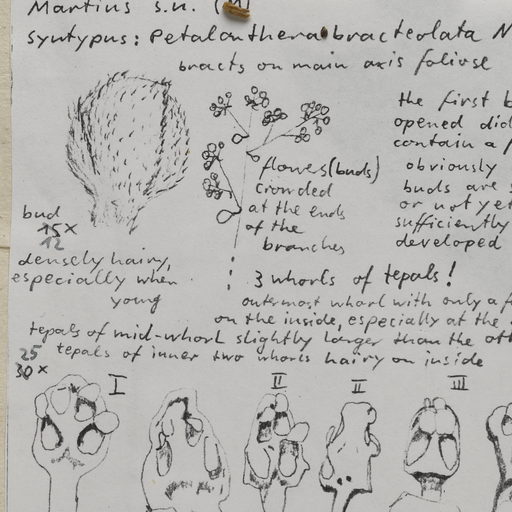 Martius s.n. (M)
syntypus: Petalanthera bracteolata N
bracts on main axis foliose
the first b
opened did
contain a
obviously
buds are s
or not yet
sufficiently
developed
flowers (buds)
crowded
at the ends
of the
branches
bud
15x
12
densely hairy,
especially when
young
3 whorls of tepals!
outermost whorl with only a f
on the inside, especially at the
tepals of mid-whorl slightly larger than the ot
tepals of inner two whorls hairy on inside
25
30x
I
II
II
III